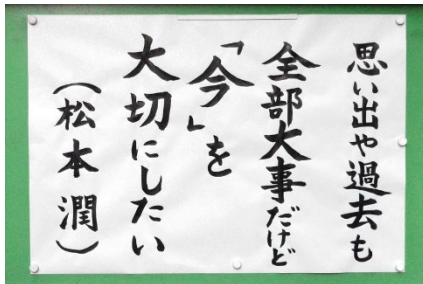 思い出や過去も
全部大事だけど
「今」を
大切にしたい
（松本潤）